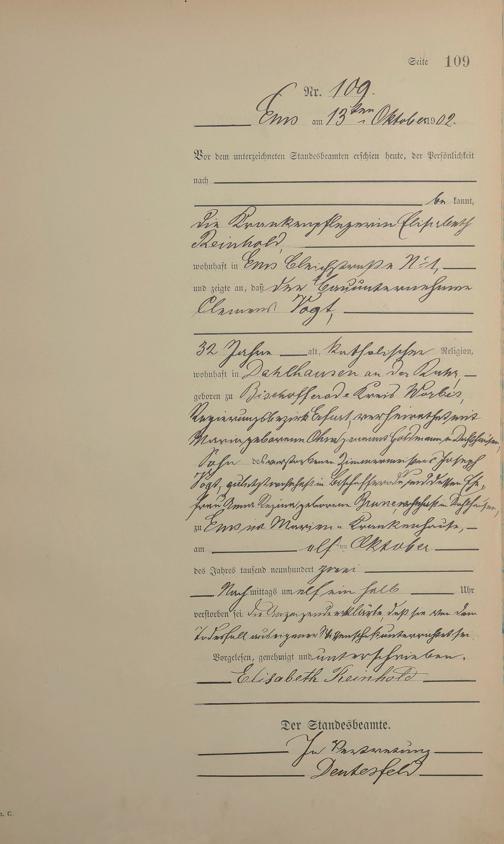 Seite 109
Nr. 109.
Ems am 13ten Oktober 1902.
Vor dem unterzeichneten Standesbeamten erschien heute, der Persönlichkeit
nach
be kannt,
die Krankenpflegerin Elisabeth
Reinhold,
wohnhaft in Ems Bleichstraße No 1,
und zeigte an, daß der Bauunternehmer
Clemens Vogt,
32 Jahre alt, katholischer Religion,
wohnhaft in Dahlhausen an der Ruhr,
geboren zu Bischofferode Kreis Worbis,
Regierungsbezirk Erfurt, verheirathet mit
Maria geborenen
Sohn des verstorbenen Zimmermeisters Joseph
Vogt, zuletzt wohnhaft in Bischofferode, und dessen Ehe-
frau Anna geborene wohnhaft in
zu Ems im Marien-Krankenhause,
am elf ten Oktober
des Jahres tausend neunhundert zwei
Nach mittags um elf ein halb Uhr
verstorben sei. Die Anzeigende erklärte, daß sie von dem
Todesfall aus eigener Wissenschaft unterrichtet sei.
Vorgelesen, genehmigt und unterschrieben.
Elisabeth Reinhold
Der Standesbeamte.
In Vertretung